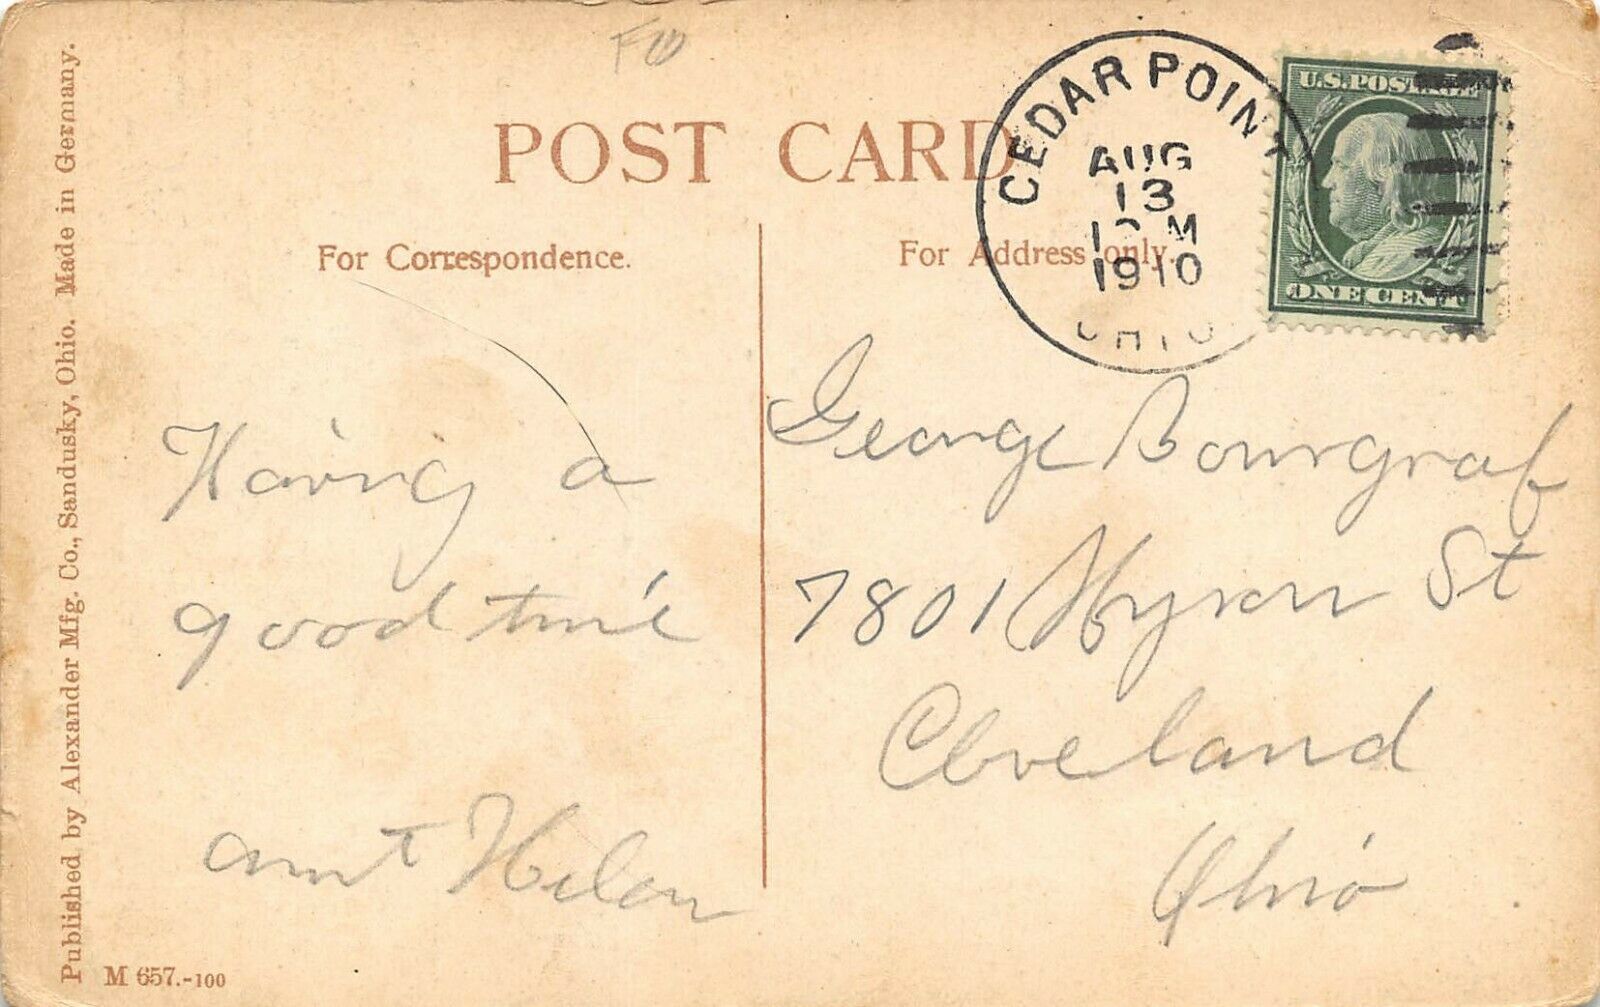 POST CARD
For Correspondence.
For Address only.
CEDAR POINT
AUG
13
M
1910
OHIO
U.S. POSTAGE
ONE CENT
Having a
good time
aunt Helen
George Bourgraf
7801 St
Cleveland
Ohio
Published by Alexander Mfg. Co., Sandusky, Ohio. Made in Germany.
M 657.-100